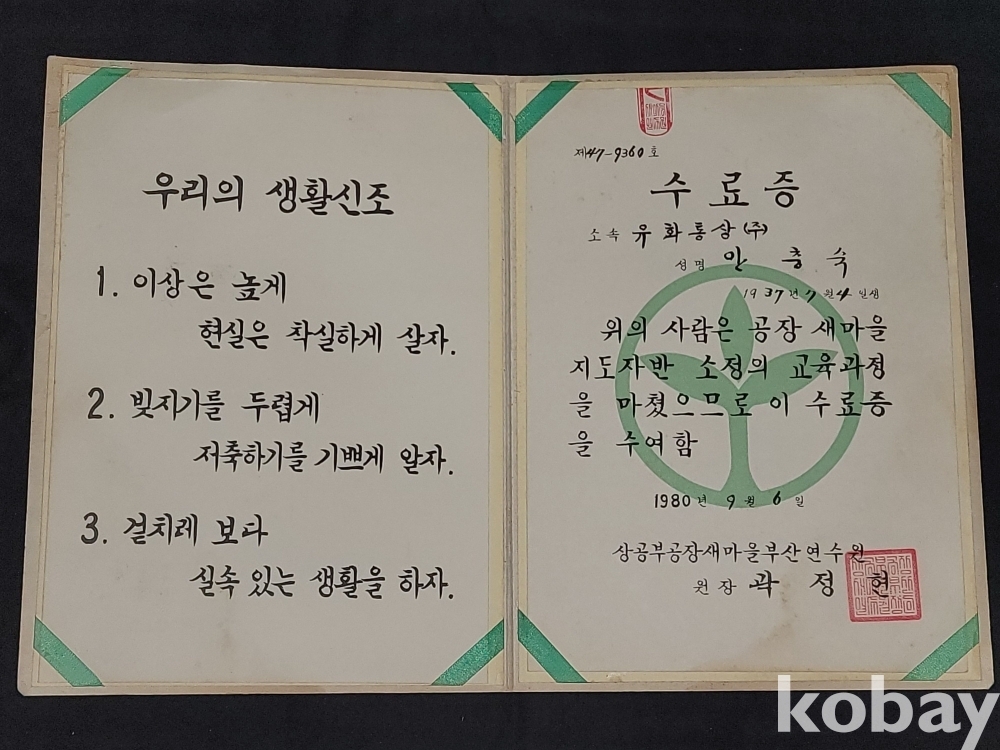 우리의 생활신조
1. 이상은 높게
현실은 착실하게 살자.
2. 빚지기를 두렵게
저축하기를 기쁘게 알자.
3. 겉치레 보다
실속 있는 생활을 하자.
제47-9360호
수료증
소속 유화통상(주)
성명 안충숙
1937년 7월 4일생
위의 사람은 공장 새마을
지도자반 소정의 교육과정
을 마쳤으므로 이 수료증
을 수여함
1980년 9월 6일
상공부공장새마을부산연수원
원장 곽정현
kobay